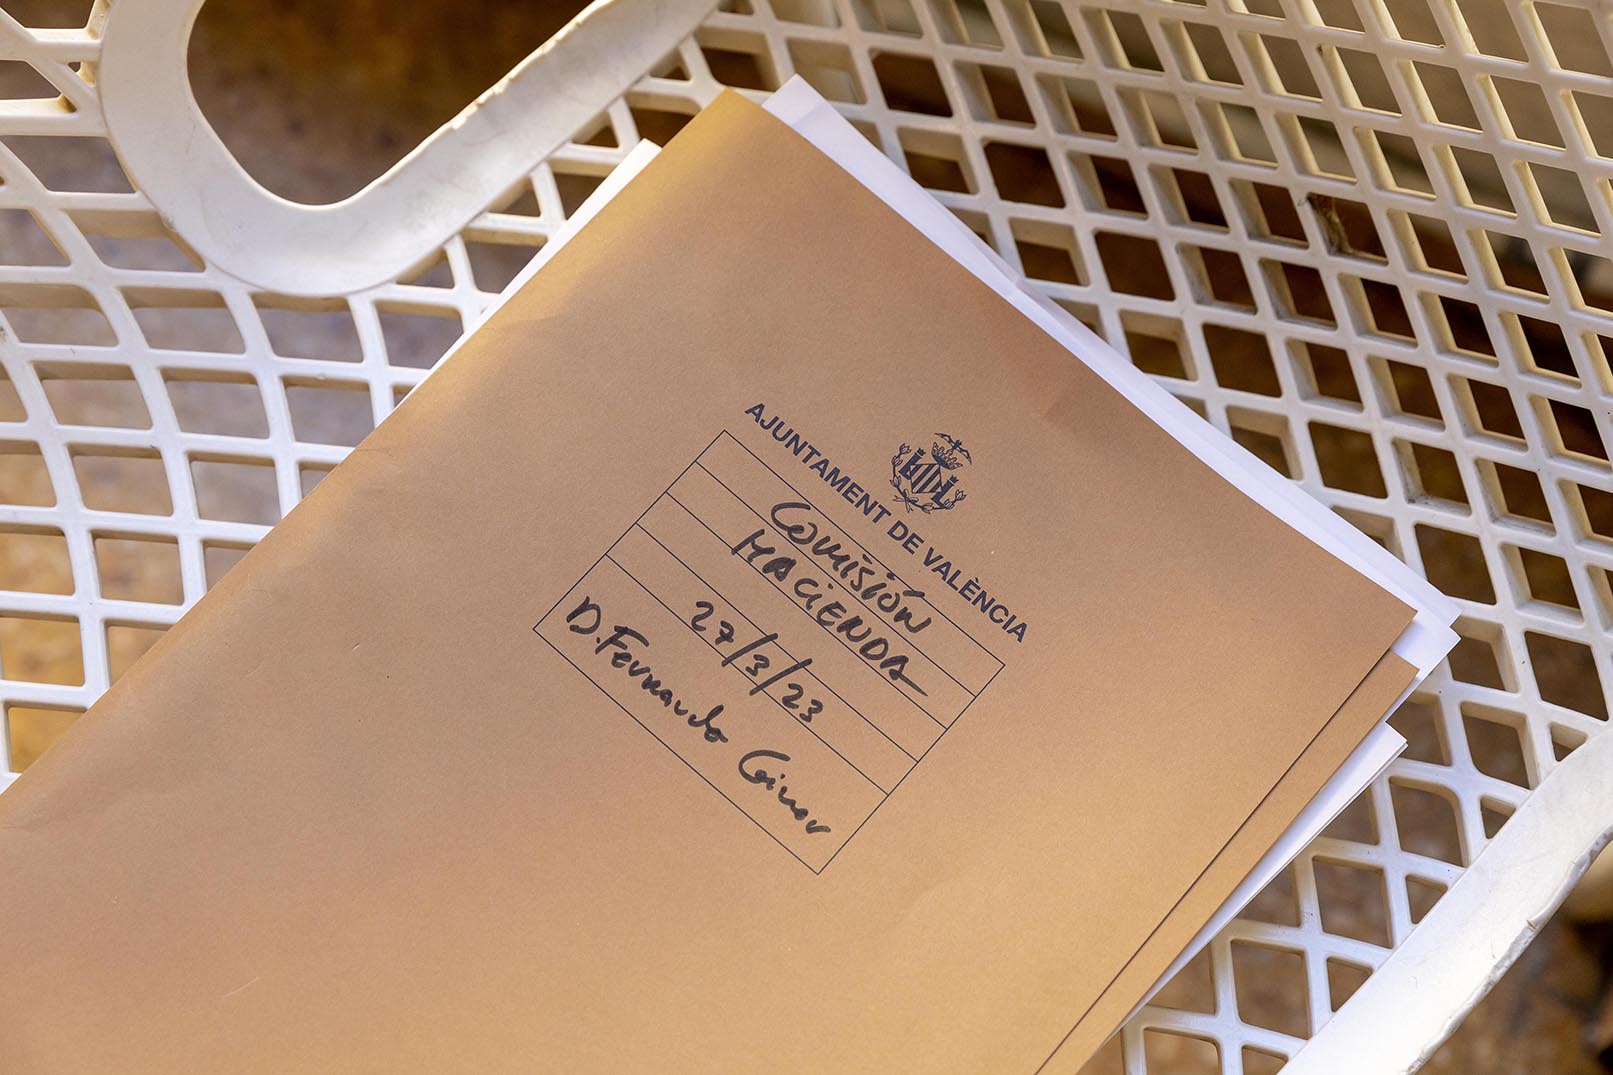 AJUNTAMENT DE VALÈNCIA
COMISIÓN
HACIENDA
27/3/23
D. Fernando Giner